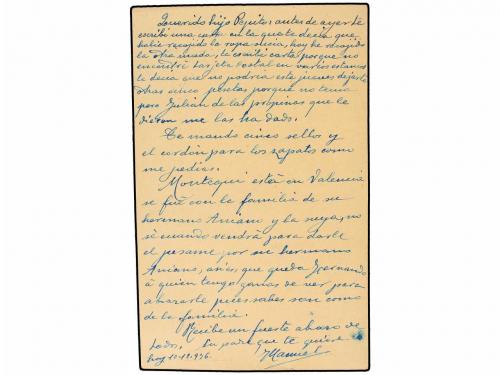 Querido hijo Pepito: antes de ayer te
escribí una carta en la que te decía que
había recogido la ropa sucia, hoy he recogido
la otra muda, te escribí carta porque no
encontré tarjeta postal en varios estancos
te decía que no podría este jueves dejarte
otras cinco pesetas porque no tenía
pero Julián de las propinas que le
dieron me las ha dado.
Te mando cinco sellos y
el cordón para los zapatos como
me pedías.
Montequi está en Valencia
se fué con la familia de su
hermano Aniano y la suya, no
sé cuando vendrá para darle
el pesame por su hermano
Aniano, que queda Fernando
á quien tengo ganas de ver para
abrazarle pues sabes son como
de la familia.
Recibe un fuerte abrazo de
todos. Tu padre que te quiere
hoy 10-12-936. Manuel